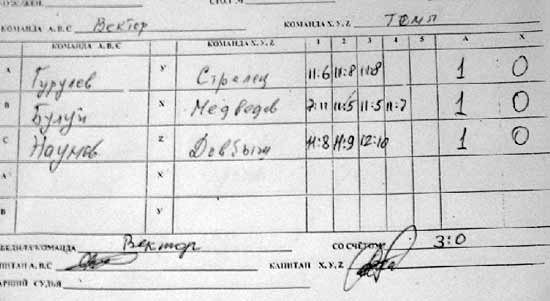 КОМАНДА А, В, С Вектор КОМАНДА X, Y, Z ТОМП
КОМАНДА А, В, С КОМАНДА X, Y, Z 1 2 3 4 5 А X
А Гурулев Y Стрелец 11:6 11:8 11:8 1 0
В Булуй X Медведев 7:11 11:5 11:5 11:7 1 0
С Наумов Z Довбыш 11:8 11:9 12:10 1 0
А X
В Y
БЕДИЛА КОМАНДА Вектор СО СЧЁТОМ 3:0
АПИТАН А, В, С КАПИТАН X, Y, Z
АРШИЙ СУДЬЯ